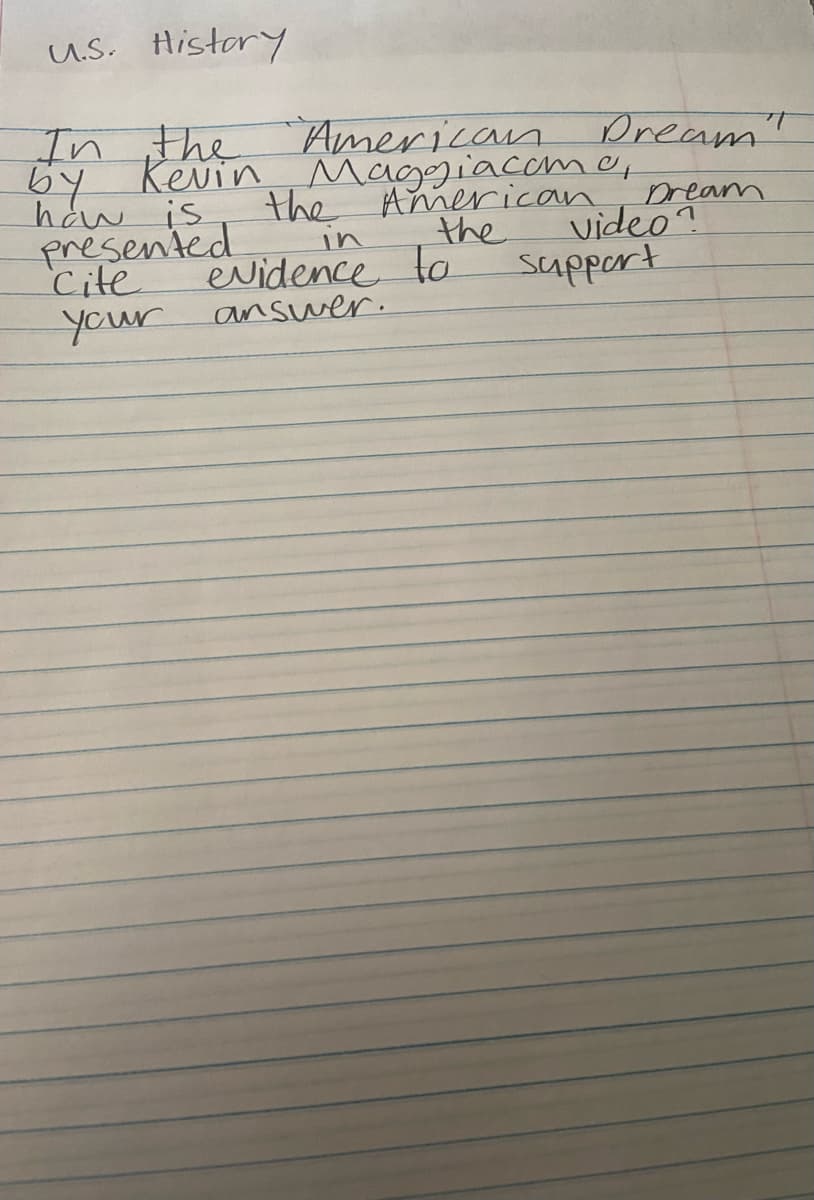 U.S. History
In the "American Dream"
by Kevin Maggiacomo,
how is the American Dream
presented in the video?
Cite evidence to support
your answer.